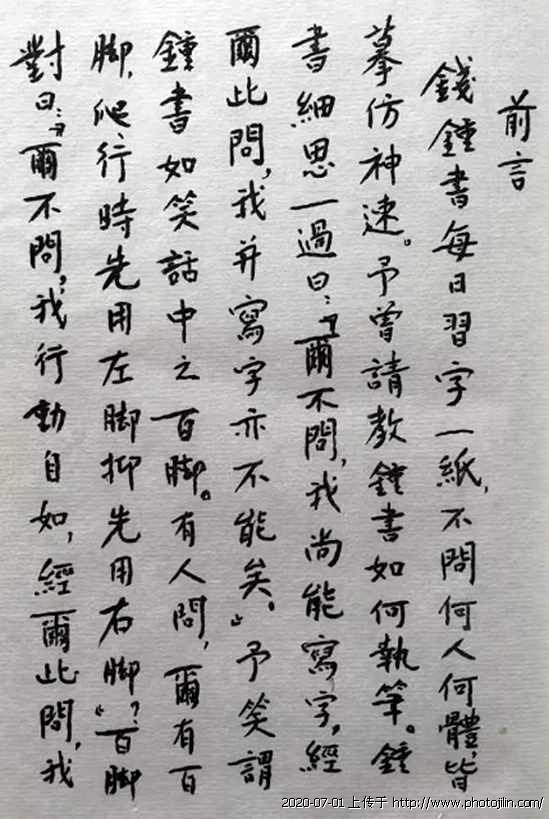 前言
錢鍾書每日習字一紙，不問何人何體，皆
摹仿神速。予曾請教鍾書如何執筆。鍾
書細思一過曰：“爾不問，我尚能寫字，經
爾此問，我并寫字亦不能矣。”予笑謂
鍾書如笑話中之百脚。有人問，爾有百
脚，爬行時先用左脚抑先用右脚？”百脚
對曰：“爾不問，我行動自如，經爾此問，我
2020-07-01 上传于 http://www.photojilin.com/